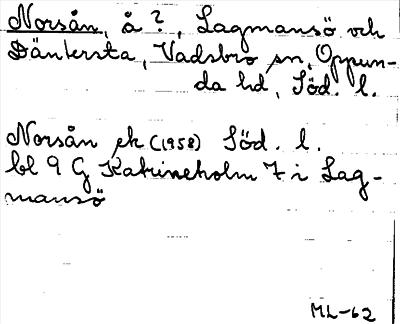 Norsån, å?, Lagmansö och
Dänkersta, Vadsbro sn, Oppun-
da hd, Söd. l.
Norsån ek (1958) Söd. l.
bl 9 G Katrineholm 7 i Lag-
mansö
ML-62